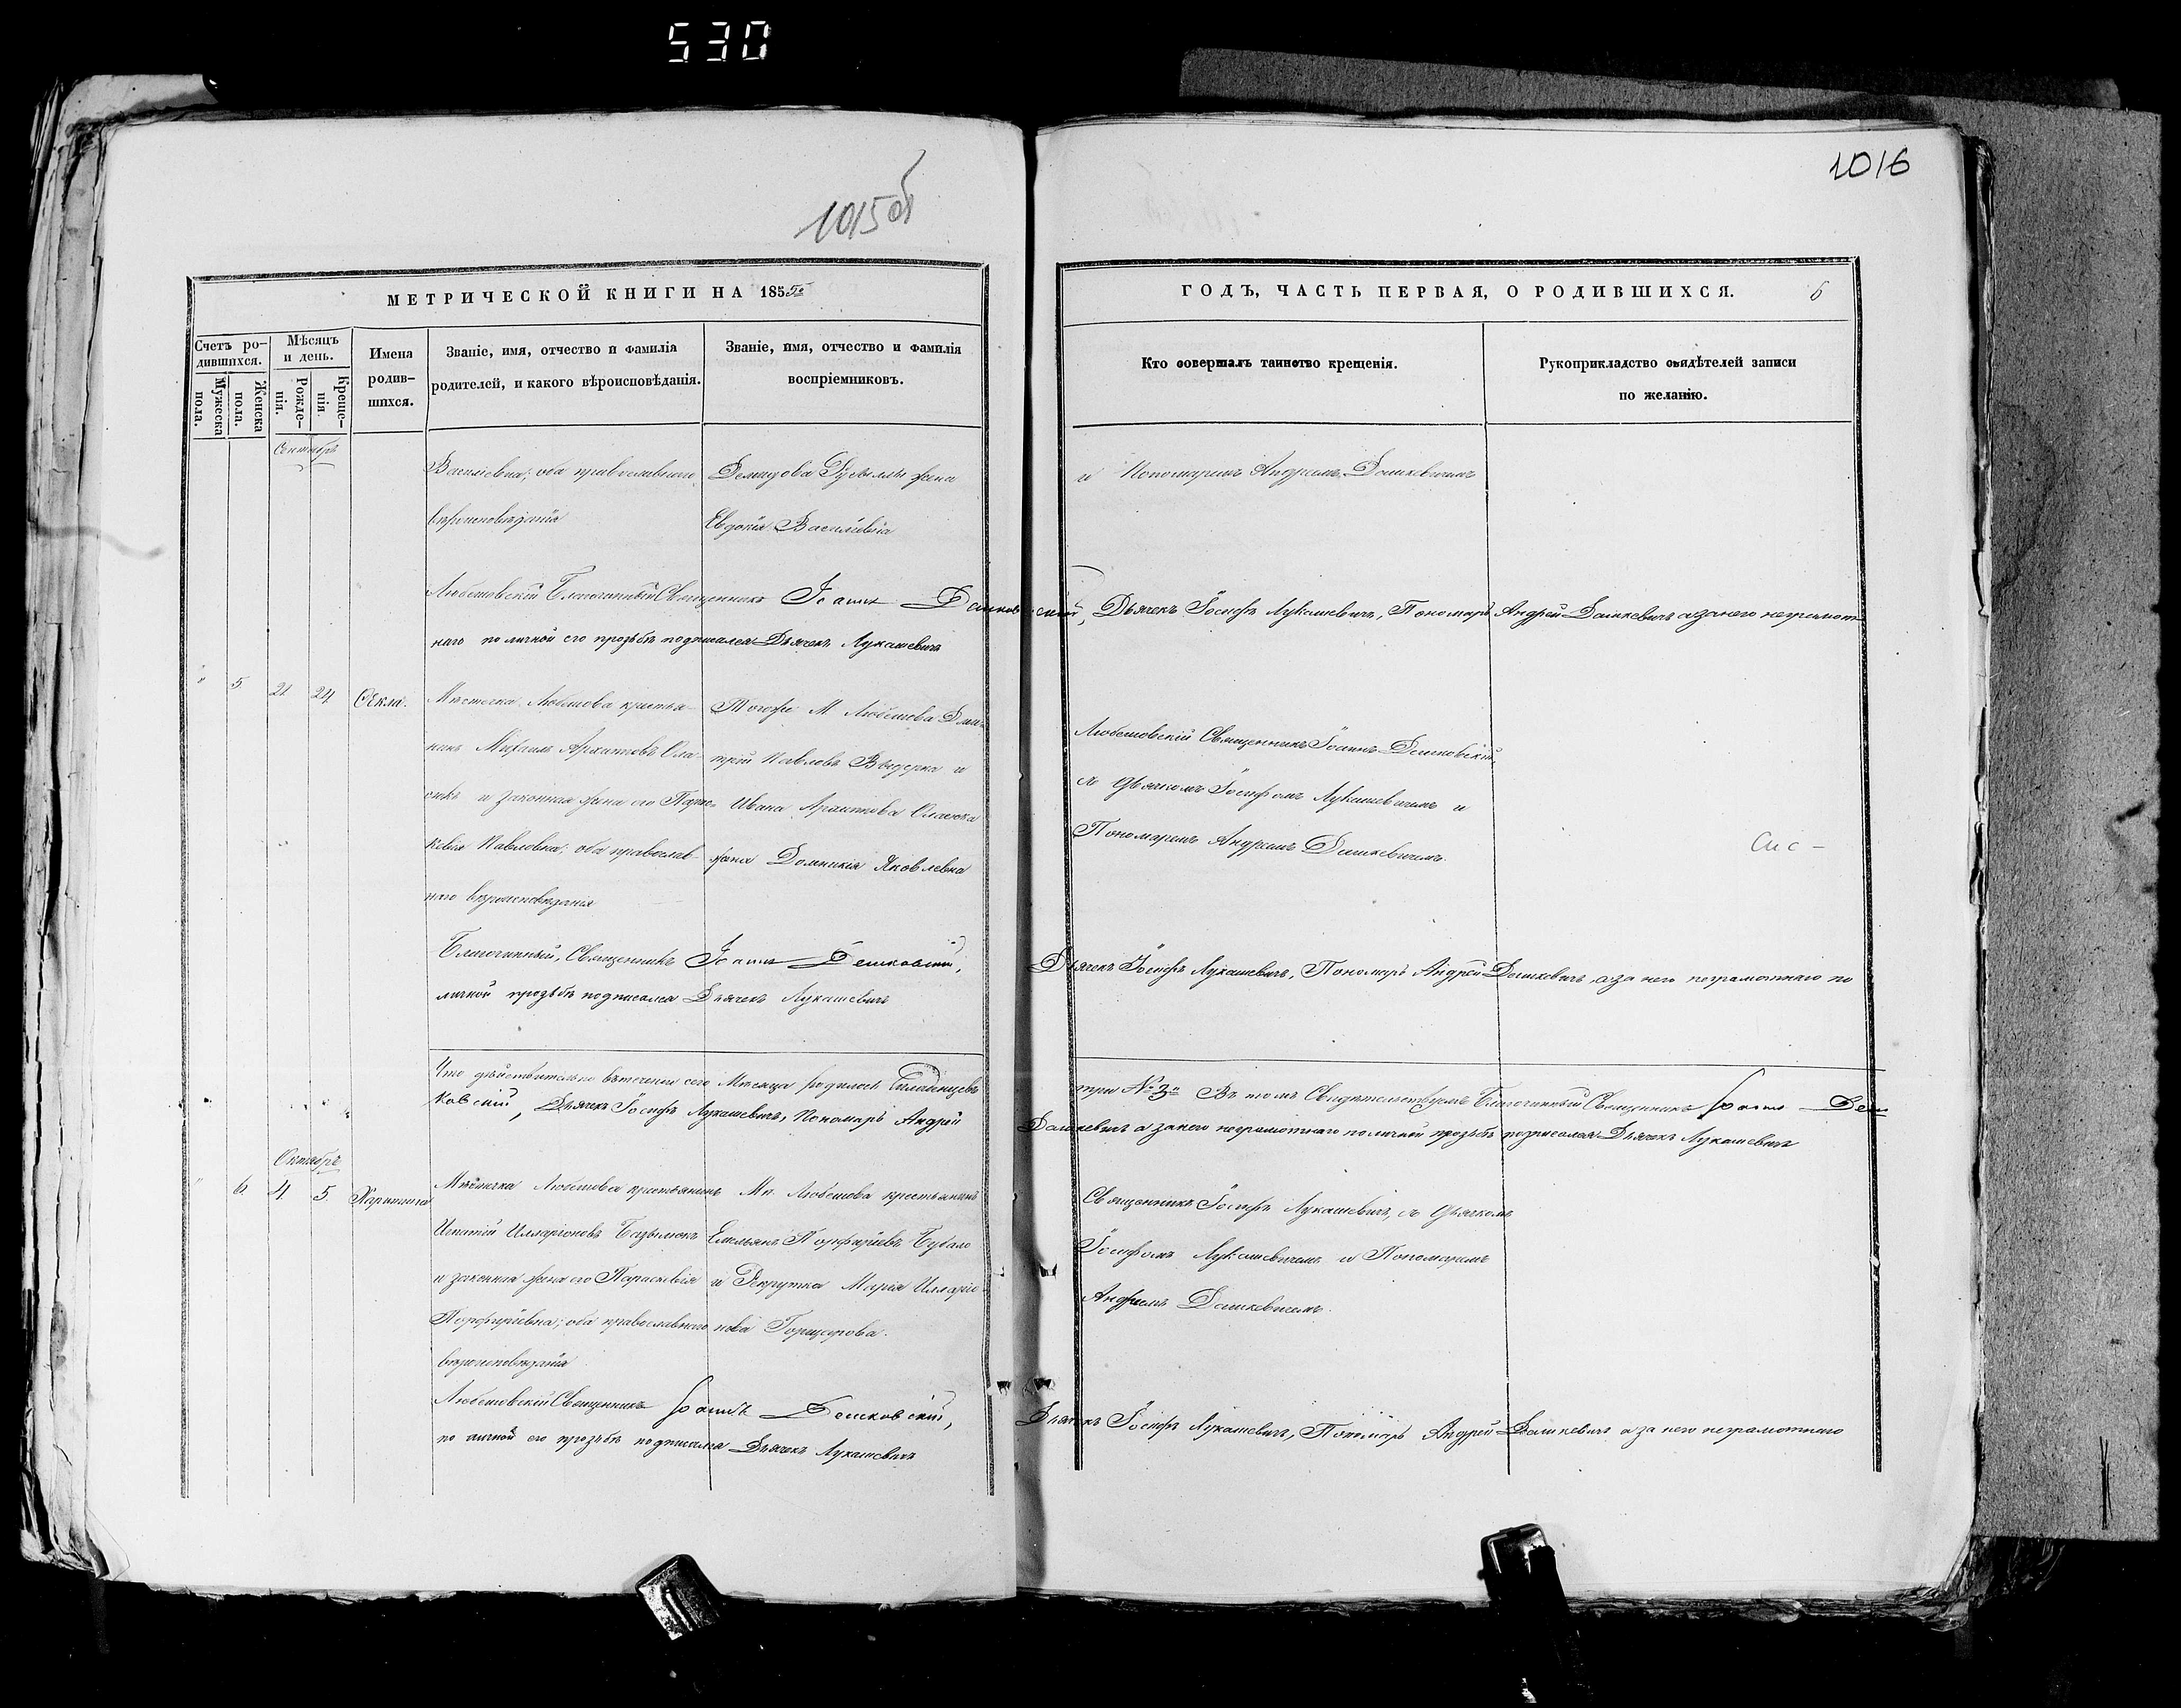 530
1015об
1016
МЕТРИЧЕСКОЙ КНИГИ НА 185
ГОДЪ, ЧАСТЬ ПЕРВАЯ, О РОДИВШИХСЯ.
Счетъ ро-
дившихся.
Мужеска пола.
Женска пола.
Мѣсяцъ и день.
Рожде-
нія.
Креще-
нія.
Имена
родив-
шихся.
Званіе, имя, отчество и фамилія
родителей, и какого вѣроисповѣданія.
Званіе, имя, отчество и фамилія
воспріемниковъ.
Кто совершалъ таинство крещенія.
Рукоприкладство свидѣтелей записи
по желанію.
Сентябрь
Васильевна; оба православнаго
вѣроисповѣданія
жена
Евдокія Василіевна
и Пономаремъ Андреемъ Дашкевичемъ
Любешовскій Благочинный Священникъ Іоаннъ Дешковскій, Дьячекъ Іосифъ Лукашевичъ, Пономарь Андрей Дашкевичъ а за него неграмот
наго по личной его прозьбѣ подписался Дьячекъ Лукашевичъ
" 5 21 24 Ѳекла.
Мѣстечка Любешова крестья-
нинъ Михаилъ Архиповъ
и законная жена его Парас-
кевія Павловна; оба православ-
наго вѣроисповѣданія
Тогоже М. Любешова Дми-
трій Павловъ Ведерка и
Ивана Архипова
жена Домникія Яковлевна
Любешовскій Священникъ Іоаннъ Дешковскій
съ Дьячкомъ Іосифомъ Лукашевичемъ и
Пономаремъ Андреемъ Дашкевичемъ.
Благочинный, Священникъ Іоаннъ Дешковскій, Дьячекъ Іосифъ Лукашевичъ, Пономарь Андрей Дашкевичъ, а за него неграмотнаго по
личной прозьбѣ подписался Дьячекъ Лукашевичъ
Что дѣйствительно втеченіи сего Мѣсяца родилось Младенцевъ три № 3 Въ томъ Свидѣтельствуемъ Благочинный Священникъ Іоаннъ Деш
ковскій, Дьячекъ Іосифъ Лукашевичъ, Пономарь Андрей Дашкевичъ а за него неграмотнаго по личной прозьбѣ подписался Дьячекъ Лукашевичъ
Октябрь
" 6 4 5 Харитина
Мѣстечка Любешова крестьянинъ
Игнатій Илларіоновъ
и законная жена его Параскевія
Порфиріевна; оба православнаго
вѣроисповѣданія
М. Любешова крестьянинъ
Емельянъ Порфиріевъ
и Рекрутка Марія Илларіо-
нова
Священникъ Іосифъ Лукашевичъ, съ Дьячкомъ
Іосифомъ Лукашевичемъ и Пономаремъ
Андреемъ Дашкевичемъ.
Любешовскій Священникъ Іоаннъ Дешковскій, Дьячекъ Іосифъ Лукашевичъ, Пономарь Андрей Дашкевичъ а за него неграмотнаго
по личной его прозьбѣ подписался Дьячекъ Лукашевичъ